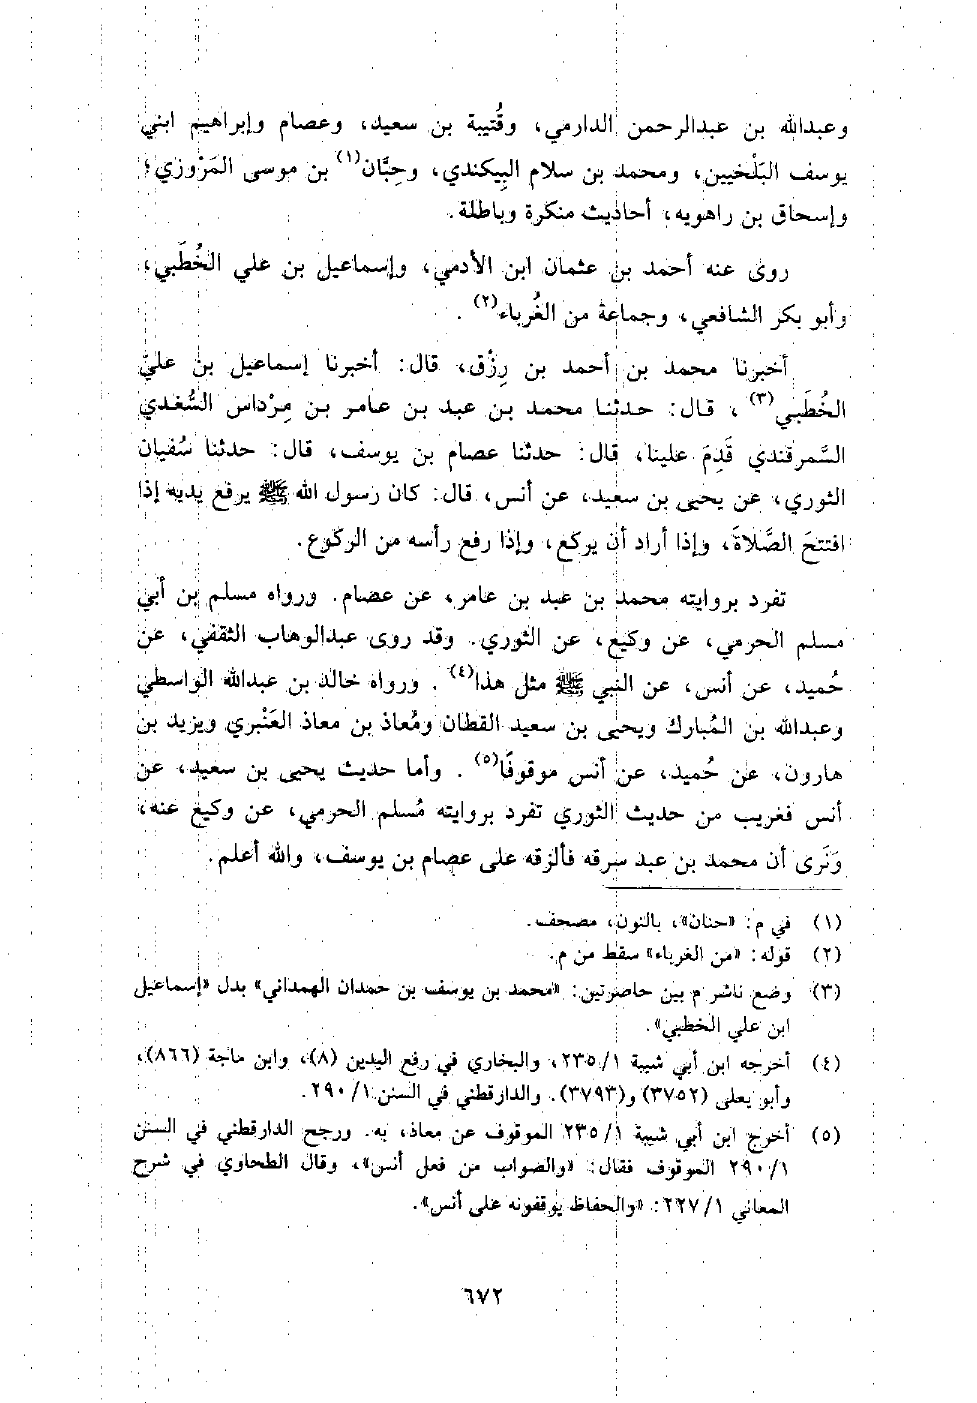 وعبدالله بن عبدالرحمن الدارمي، وقُتيبة بن سعيد، وعصام وإبراهيم ابني
يوسف البَلْخيين، ومحمد بن سلام البِيكندي، وحِبَّان(١) بن موسى المَرْوزي؛
وإسحاق بن راهويه، أحاديث منكرة وباطلة.
روى عنه أحمد بن عثمان ابن الأدمي، وإسماعيل بن علي الخُطَبي،
وأبو بكر الشافعي، وجماعة من الغُرباء(٢) .
أخبرنا محمد بن أحمد بن رِزْق، قال: أخبرنا إسماعيل بن عليّ
الخُطَبي(٣) ، قال: حدثنا محمد بن عبد بن عامر بن مِرْداس السُّغدي
السَّمرقندي قَدِمَ علينا، قال: حدثنا عصام بن يوسف، قال: حدثنا سُفيان
الثوري، عن يحيى بن سعيد، عن أنس، قال: كان رسول الله ﷺ يرفع يديه إذا
افتتحَ الصَّلاةَ، وإذا أراد أن يركع، وإذا رفع رأسه من الركوع.
تفرد بروايته محمد بن عبد بن عامر، عن عصام. ورواه مسلم بن أبي
مسلم الحرمي، عن وكيع، عن الثوري. وقد روى عبدالوهاب الثقفي، عن
حُميد، عن أنس، عن النبي ﷺ مثل هذا(٤) . ورواه خالد بن عبدالله الواسطي
وعبدالله بن المُبارك ويحيى بن سعيد القطان ومُعاذ بن معاذ العَنْبري ويزيد بن
هارون، عن حُميد، عن أنس موقوفًا(٥) . وأما حديث يحيى بن سعيد، عن
أنس فغريب من حديث الثوري تفرد بروايته مُسلم الحرمي، عن وكيع عنه،
وَنَرى أن محمد بن عبد سرقه فألزقه على عصام بن يوسف، والله أعلم.
(١) في م: «حنان»، بالنون، مصحف.
(٢) قوله: «من الغرباء» سقط من م.
(٣) وضع ناشر م بين حاصرتين: «محمد بن يوسف بن حمدان الهمداني» بدل «إسماعيل
ابن علي الخطبي».
(٤) أخرجه ابن أبي شيبة ١/ ٢٣٥، والبخاري في رفع اليدين (٨)، وابن ماجة (٨٦٦)،
وأبو يعلى (٣٧٥٢) و(٣٧٩٣). والدارقطني في السنن ١/ ٢٩٠.
(٥) أخرج ابن أبي شيبة ١/ ٢٣٥ الموقوف عن معاذ، به. ورجح الدارقطني في السنن
١/ ٢٩٠ الموقوف فقال: «والصواب من فعل أنس»، وقال الطحاوي في شرح
المعاني ١/ ٢٢٧: «والحفاظ يوقفونه على أنس».
٦٧٢